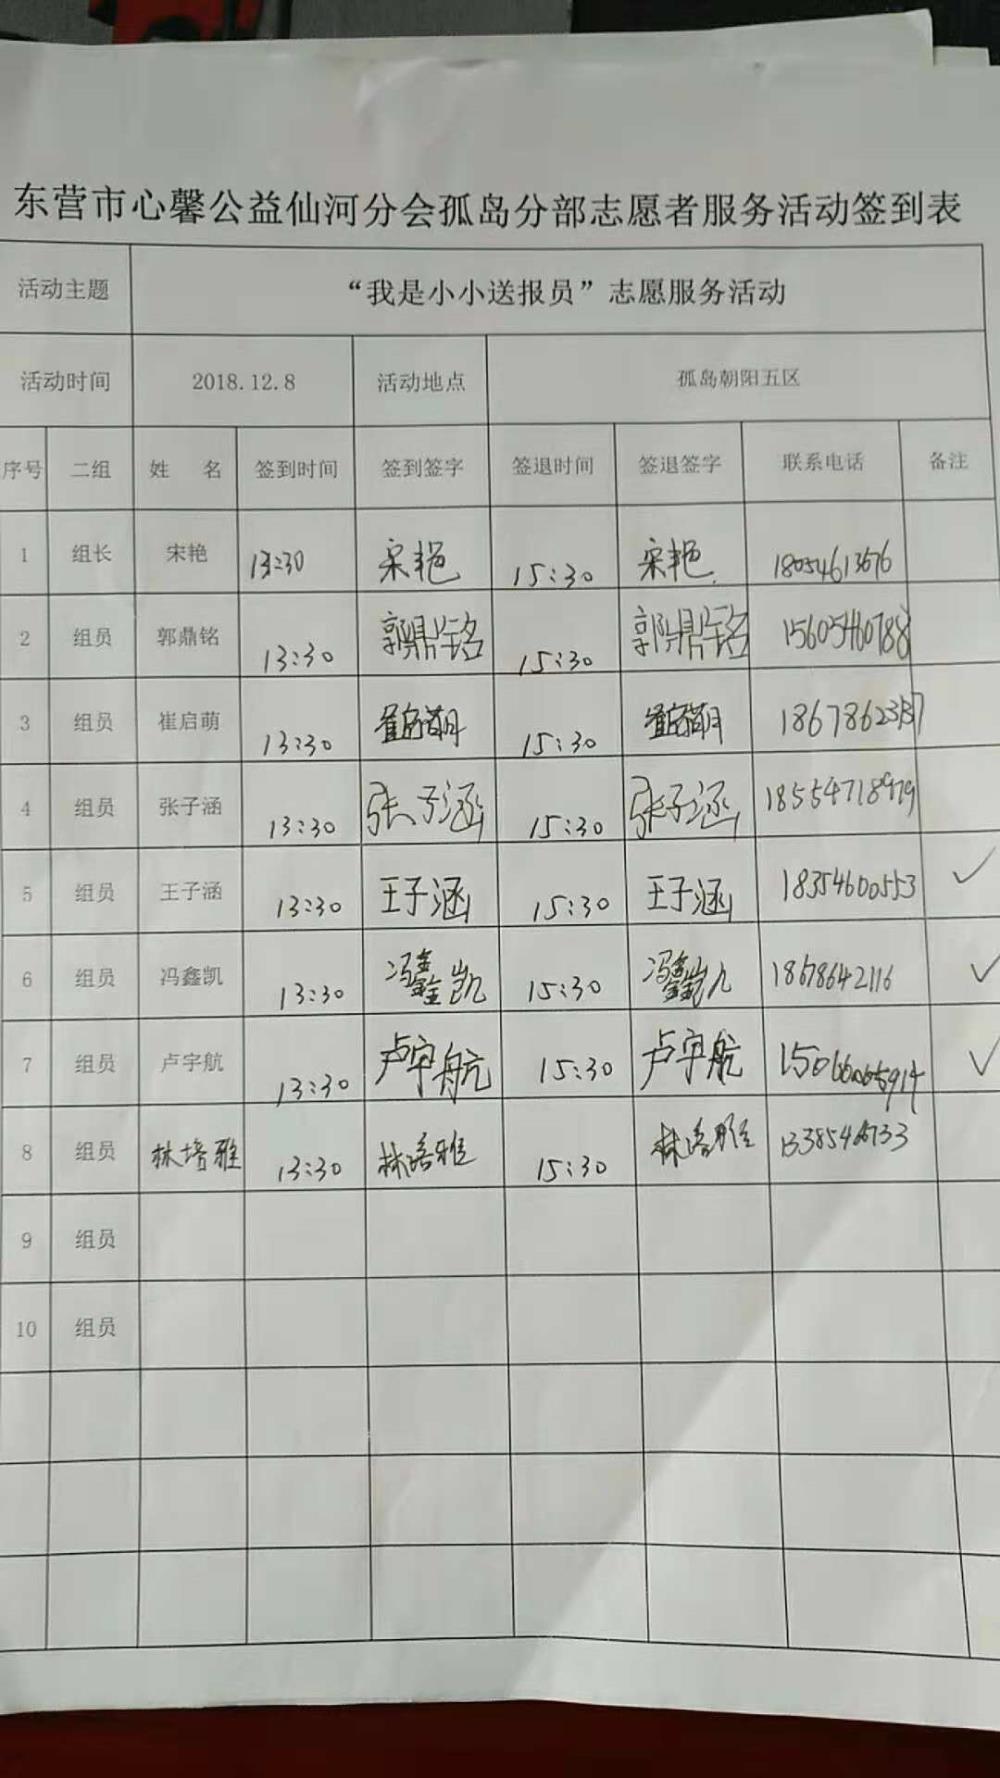 东营市心馨公益仙河分会孤岛分部志愿者服务活动签到表
活动主题 “我是小小送报员”志愿服务活动
活动时间 2018.12.8 活动地点 孤岛朝阳五区
序号 二组 姓 名 签到时间 签到签字 签退时间 签退签字 联系电话 备注
1 组长 宋艳 13:30 宋艳 15:30 宋艳 18054613676
2 组员 郭鼎铭 13:30 郭鼎铭 15:30 郭鼎铭 15605460788
3 组员 崔启萌 13:30 崔启萌 15:30 崔启萌
4 组员 张子涵 13:30 张子涵 15:30 张子涵 18554718979
5 组员 王子涵 13:30 王子涵 15:30 王子涵 18354600553 ✓
6 组员 冯鑫凯 13:30 冯鑫凯 15:30 冯鑫凯 18678642116 ✓
7 组员 卢宇航 13:30 卢宇航 15:30 卢宇航 ✓
8 组员 林培雅 13:30 林培雅 15:30 林培雅
9 组员
10 组员